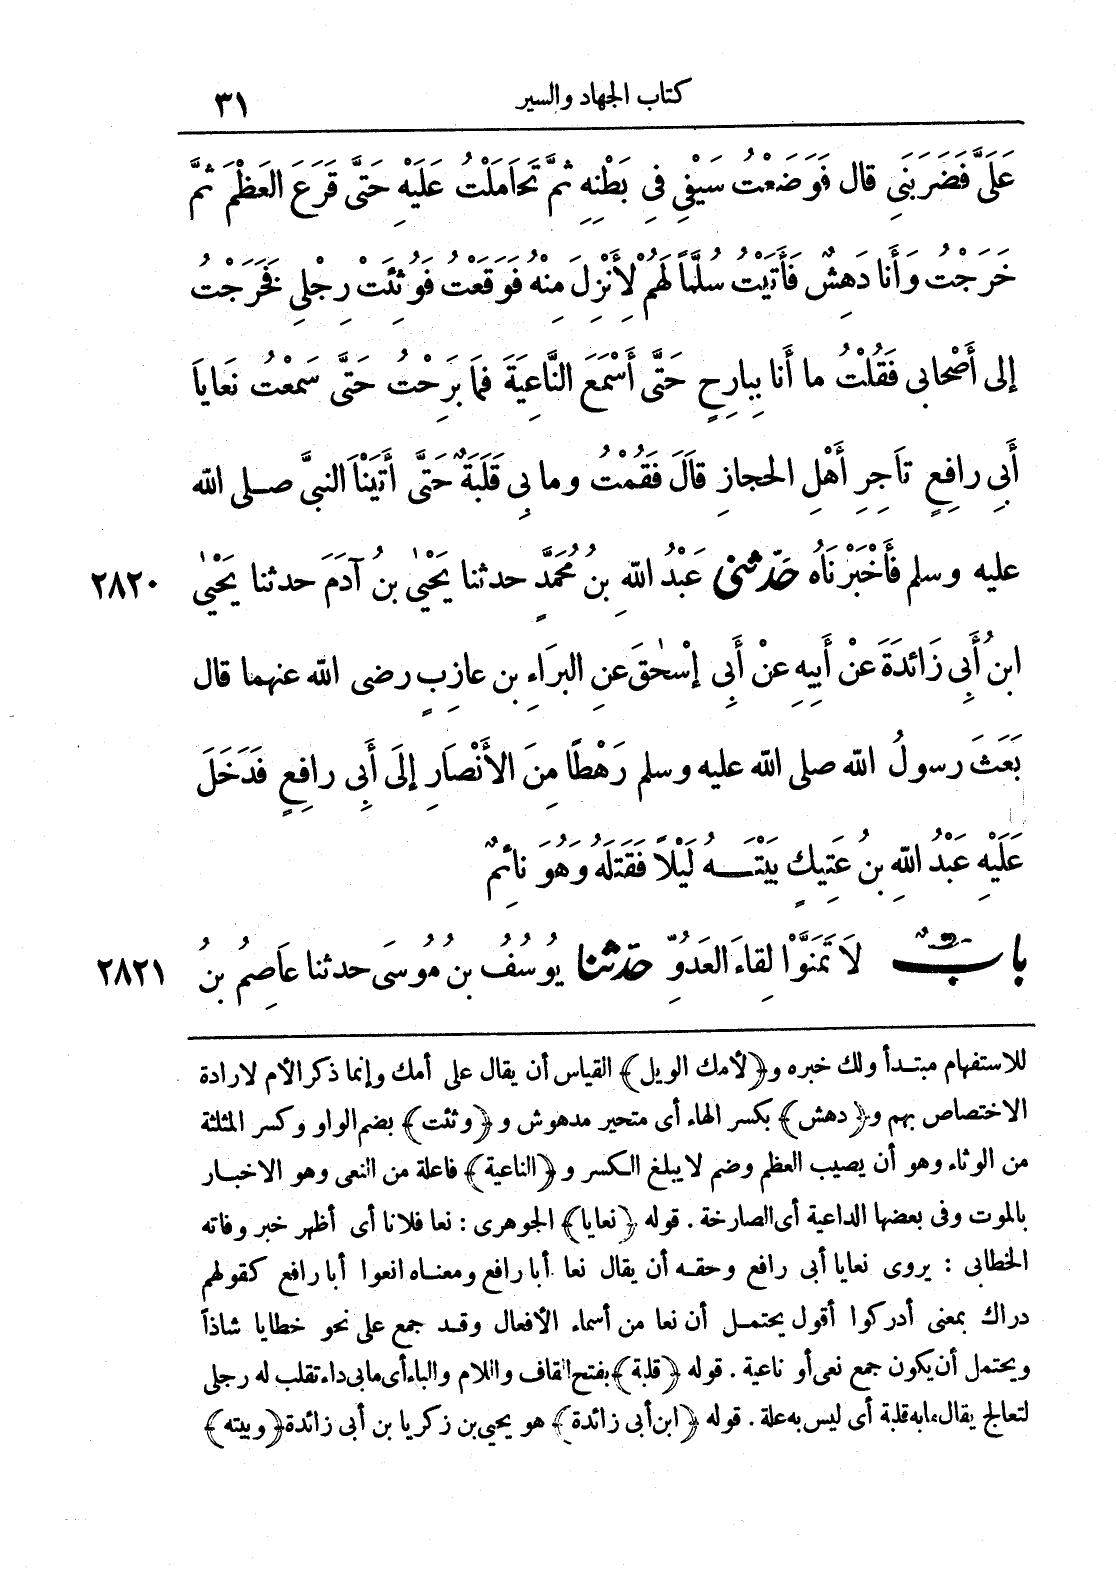 كتاب الجهاد والسير ٣١
عَلَىَّ فَضَرَبَنِى قال فَوَضَعْتُ سَيْفِى فِى بَطْنِهِ ثمَّ تَحَامَلْتُ عَلَيْهِ حَتَّى قَرَعَ العَظْمَ ثمَّ
خَرَجْتُ وَأَنا دَهِشٌ فَأَتَيْتُ سُلَّمًا لَهُمْ لِأَنْزِلَ مِنْهُ فَوَقَعْتُ فَوُثِئَتْ رِجْلِى فَخَرَجْتُ
إلى أَصْحابى فَقُلْتُ ما أَنا بِبارِحٍ حَتَّى أَسْمَعَ النَّاعِيَةَ فمَا بَرِحْتُ حَتَّى سَمعْتُ نَعاياَ
أَبِى رافِعٍ تاَجِرِ أَهْلِ الحجازِ قاَلَ فَقُمْتُ وما بِى قَلَبَةٌ حَتَّى أَتَيْناَ النبىَّ صلى الله
عليه وسلم فأَخْبَرْناَهُ حَدّثنى عَبْدُ اللهِ بنُ مُحَمَّدٍ حدثنا يَحْيٰى بنُ آدَمَ حدثنا يَحْيٰى ٢٨٢٠
ابنُ أَبِى زَائدَةَ عَنْ أَبِيهِ عَنْ أَبِى إسْحٰقَ عنِ البَرَاءِ بنِ عازِبٍ رضى الله عنهما قال
بَعَثَ رسولُ الله صلى الله عليه وسلم رَهْطًا مِنَ الأَنْصَارِ إلَى أَبِى رافِعٍ فَدَخَلَ
عَلَيْهِ عَبْدُ اللهِ بنُ عَتِيكٍ بَيْتَهُ لَيْلاً فَقَتَلَهُ وَهُوَ نائمٌ
بابٌ لاَ تَمَنَّوْا لِقاءَ العَدُوِّ حَدّثنا يُوسُفُ بنُ مُوسَى حدثنا عاَصِمُ بنُ ٢٨٢١
للاستفهام مبتدأ ولك خبره و﴿لأمك الويل﴾ القياس أن يقال على أمك وإنما ذكر الأم لارادة
الاختصاص بهم و﴿دهش﴾ بكسر الهاء أى متحير مدهوش و﴿وثئت﴾ بضم الواو وكسر المثلثة
من الوثاء وهو أن يصيب العظم وضم لا يبلغ الكسر و﴿الناعية﴾ فاعلة من النعى وهو الاخبار
بالموت وفى بعضها الداعية أى الصارخة . قوله ﴿نعايا﴾ الجوهرى : نعا فلانا أى أظهر خبر وفاته
الخطابى : يروى نعايا أبى رافع وحقه أن يقال نعا أبا رافع ومعناه انعوا أبا رافع كقولهم
دراك بمعنى أدركوا أقول يحتمل أن نعا من أسماء الأفعال وقد جمع على نحو خطايا شاذاً
ويحتمل أن يكون جمع نعى أو ناعية . قوله ﴿قلبة﴾ بفتح القاف واللام والباء أى ما بى داء تقلب له رجلى
لتعالج يقال ما به قلبة أى ليس به علة . قوله ﴿ابن أبى زائدة﴾ هو يحيى بن زكريا بن أبى زائدة ﴿وبيته﴾